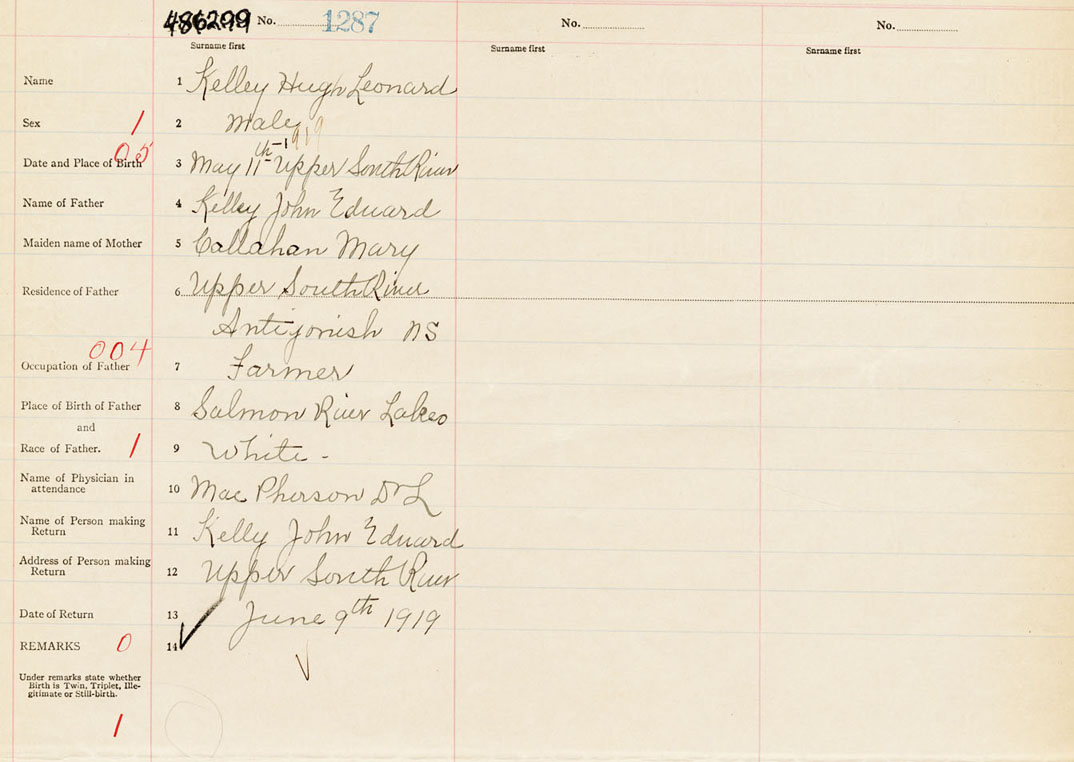 486299 No. 1287 No. No.
Surname first Surname first Surname first
Name 1 Kelley Hugh Leonard
Sex 1 2 Male
05 th 1919
Date and Place of Birth 3 May 11 Upper South River
Name of Father 4 Kelley John Edward
Maiden name of Mother 5 Callahan Mary
Residence of Father 6 Upper South River
Antigonish NS
004
Occupation of Father 7 Farmer
Place of Birth of Father 8 Salmon River Lakes
and
Race of Father. 1 9 White -
Name of Physician in
attendance 10 MacPherson Dr L
Name of Person making
Return 11 Kelly John Edward
Address of Person making
Return 12 Upper South River
Date of Return 13 June 9th 1919
REMARKS 0 14
Under remarks state whether
Birth is Twin, Triplet, Ille-
gitimate or Still-birth.
1